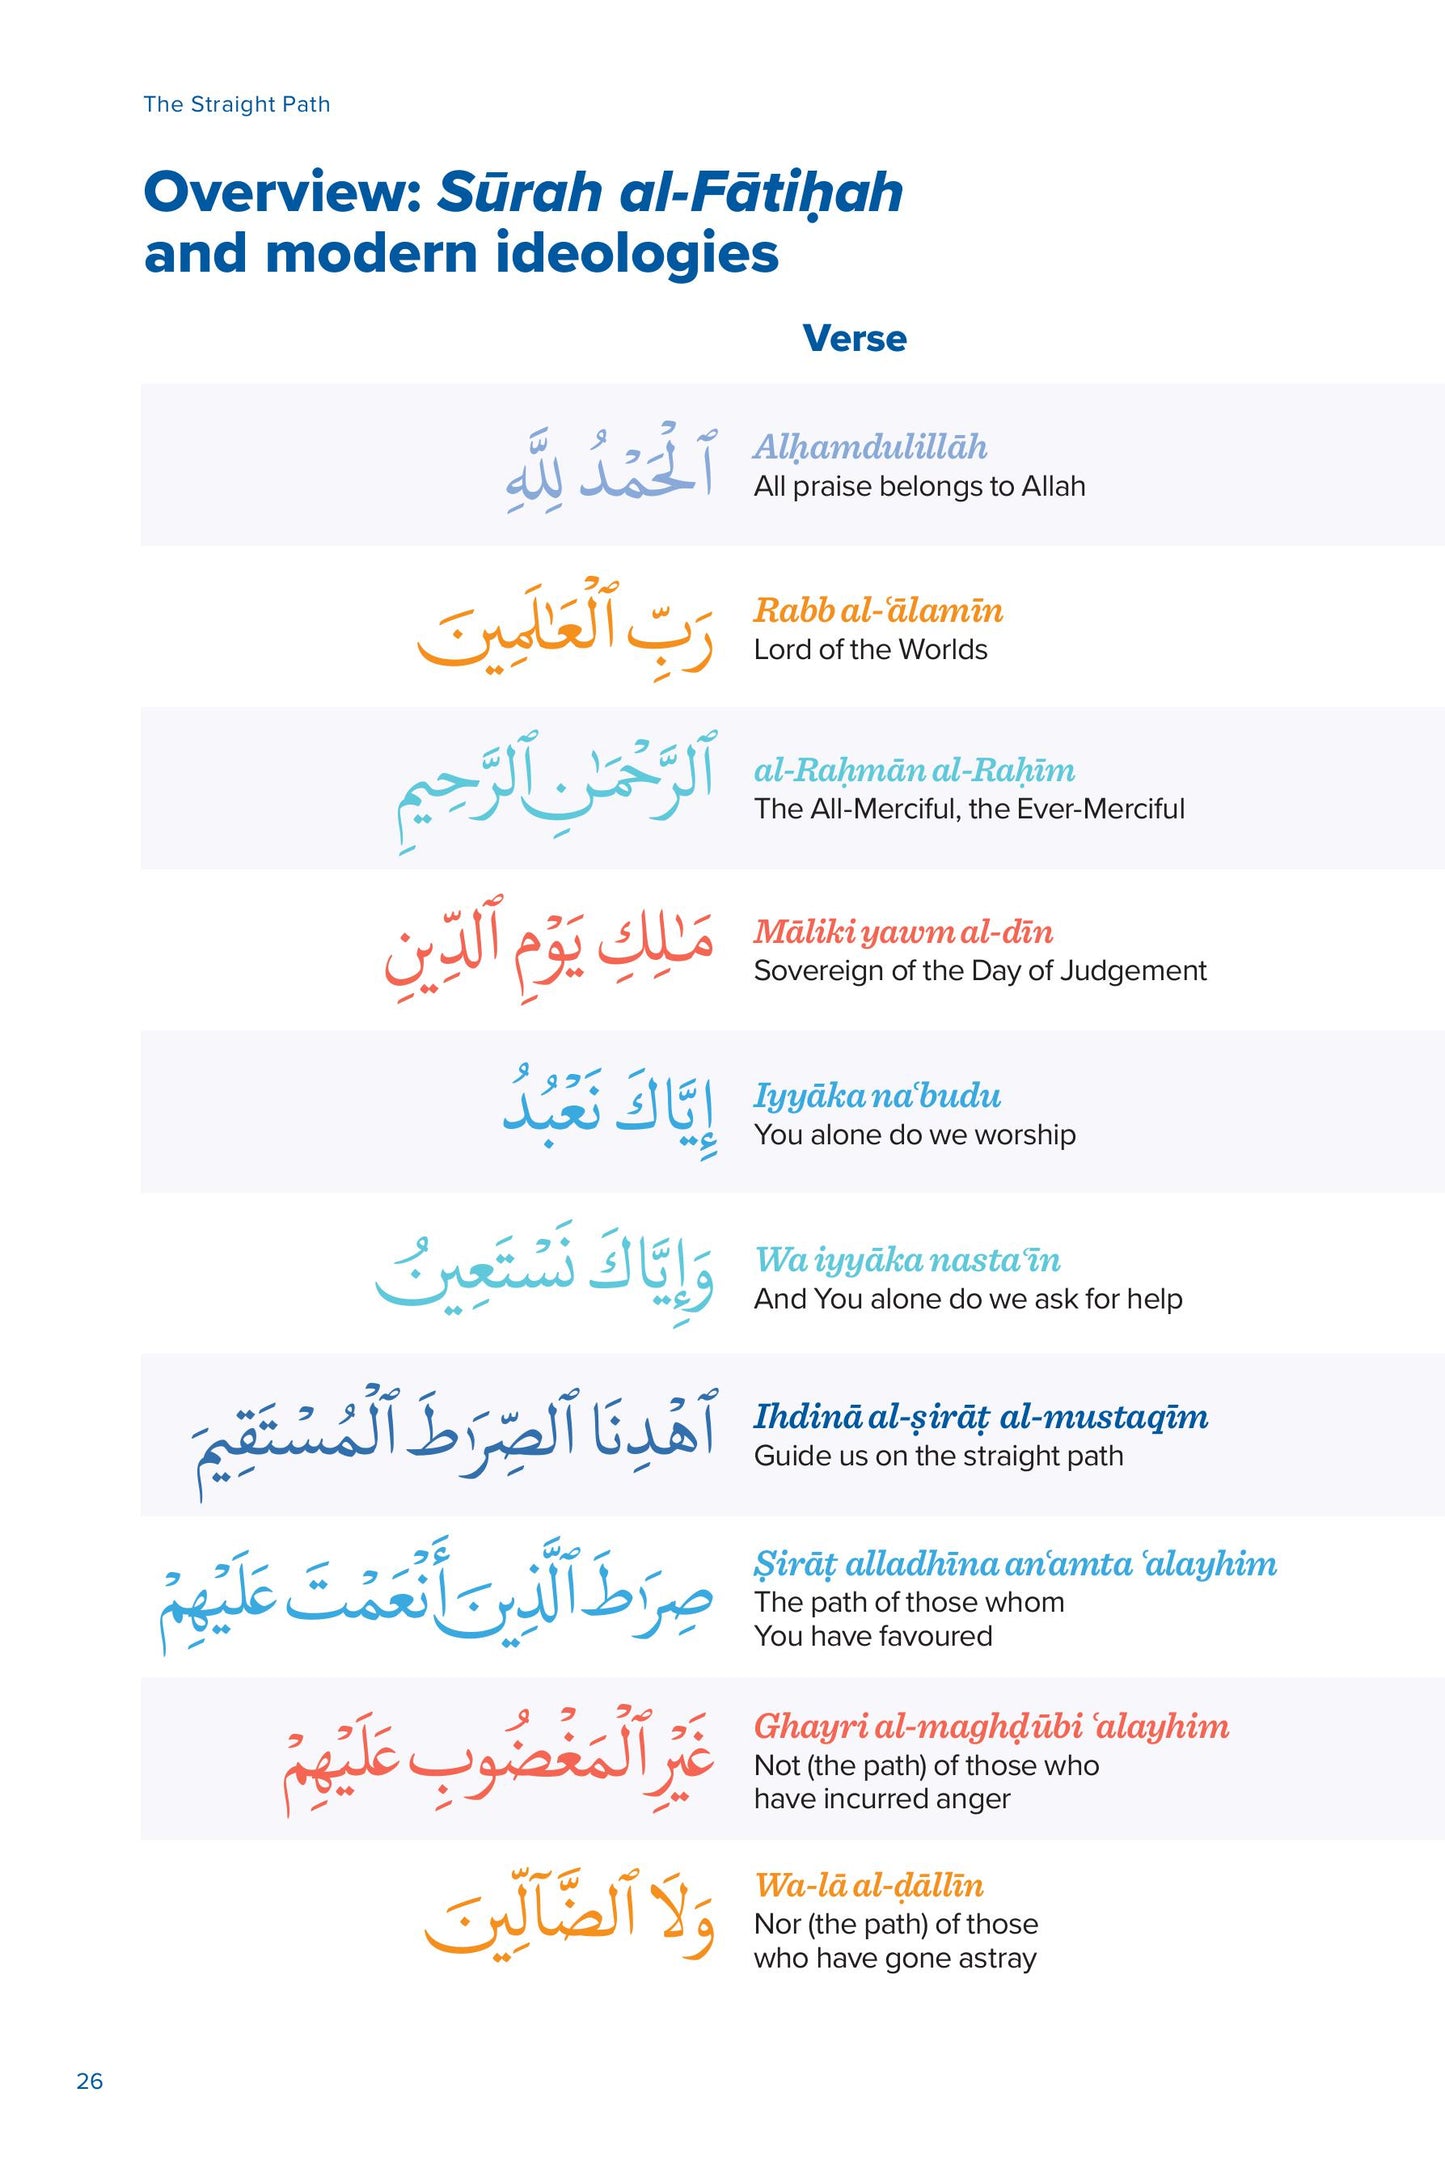 The Straight Path
Overview: Sūrah al-Fātiḥah
and modern ideologies
Verse
ٱلْحَمْدُ لِلَّهِ
Alḥamdulillāh
All praise belongs to Allah
رَبِّ ٱلْعَـٰلَمِينَ
Rabb al-ʿālamīn
Lord of the Worlds
ٱلرَّحْمَـٰنِ ٱلرَّحِيمِ
al-Raḥmān al-Raḥīm
The All-Merciful, the Ever-Merciful
مَـٰلِكِ يَوْمِ ٱلدِّينِ
Māliki yawm al-dīn
Sovereign of the Day of Judgement
إِيَّاكَ نَعْبُدُ
Iyyāka naʿbudu
You alone do we worship
وَإِيَّاكَ نَسْتَعِينُ
Wa iyyāka nastaʿīn
And You alone do we ask for help
ٱهْدِنَا ٱلصِّرَٰطَ ٱلْمُسْتَقِيمَ
Ihdinā al-ṣirāṭ al-mustaqīm
Guide us on the straight path
صِرَٰطَ ٱلَّذِينَ أَنْعَمْتَ عَلَيْهِمْ
Ṣirāṭ alladhīna anʿamta ʿalayhim
The path of those whom
You have favoured
غَيْرِ ٱلْمَغْضُوبِ عَلَيْهِمْ
Ghayri al-maghḍūbi ʿalayhim
Not (the path) of those who
have incurred anger
وَلَا ٱلضَّآلِّينَ
Wa-lā al-ḍāllīn
Nor (the path) of those
who have gone astray
26